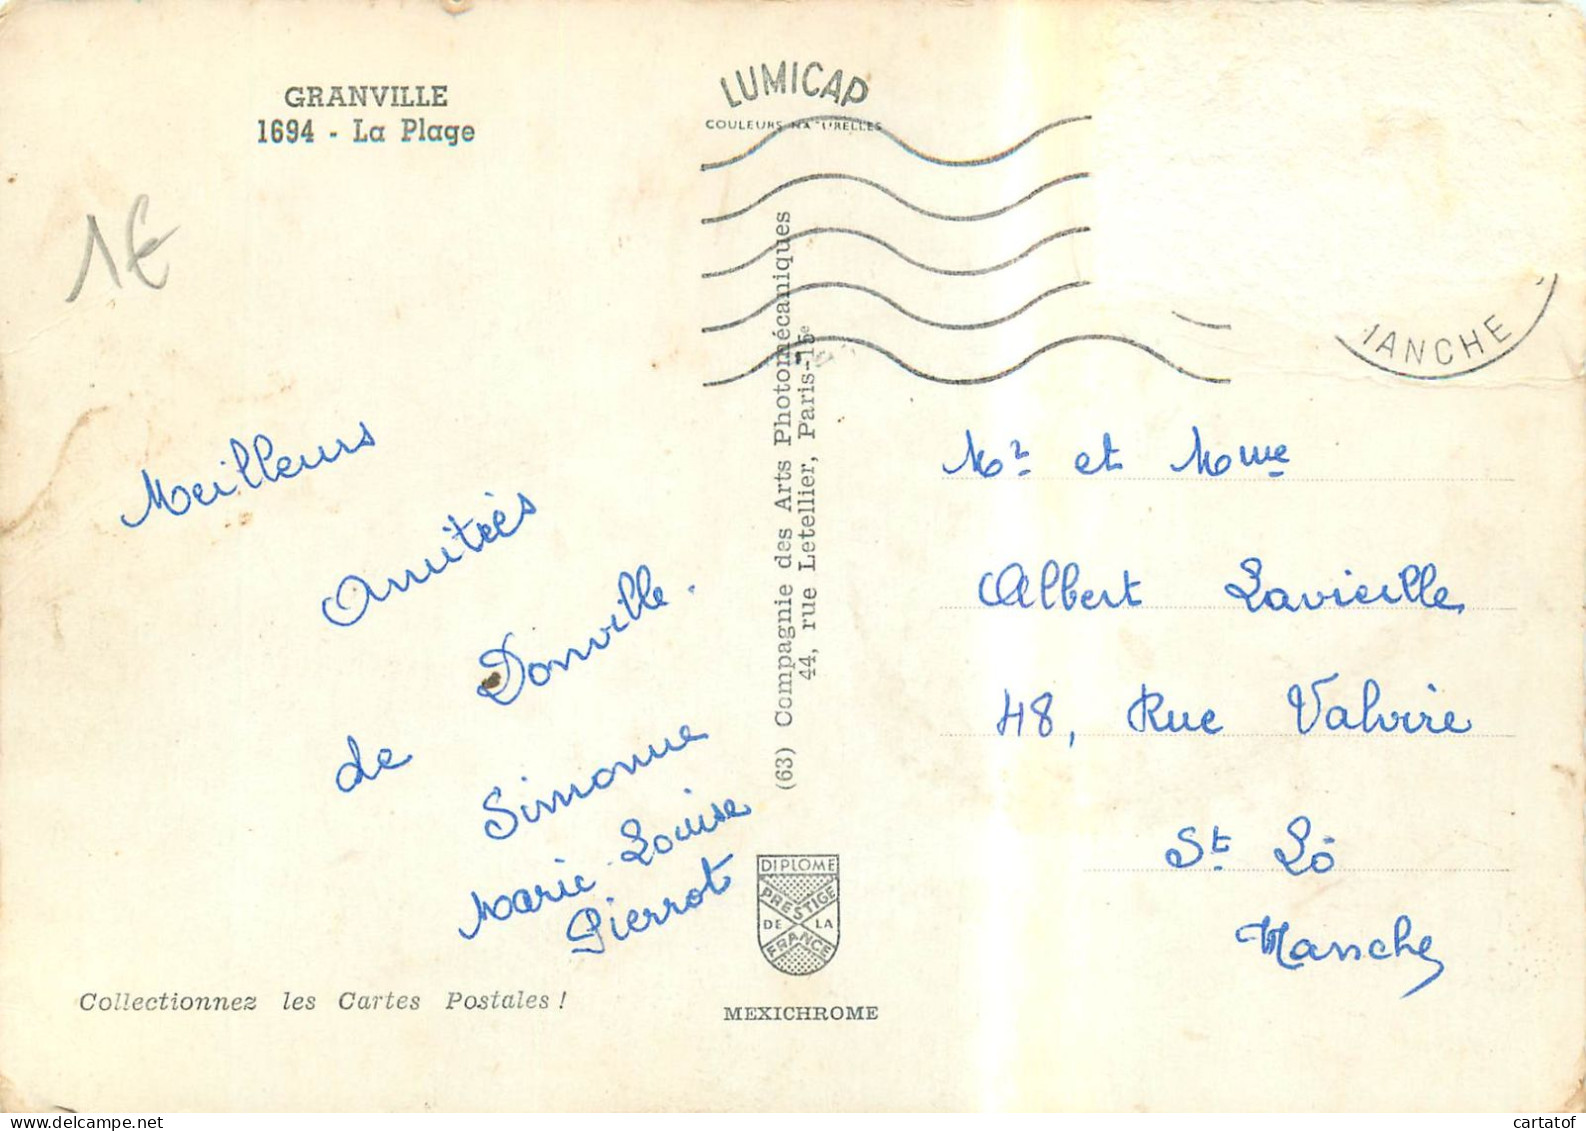 GRANVILLE
1694 - La Plage
LUMICAP
COULEURS NATURELLES
1€
MANCHE
Meilleurs
Amitiés
de Donville.
Simonne
Marie Louise
Pierrot
(63) Compagnie des Arts Photomécaniques
44, rue Letellier, Paris-15e
Mr et Mme
Albert Lavieille
48, Rue Valvire
St Lô
Manche
DIPLOME
PRESTIGE
DE LA
FRANCE
Collectionnez les Cartes Postales !
MEXICHROME
delcampe.net
cartatof